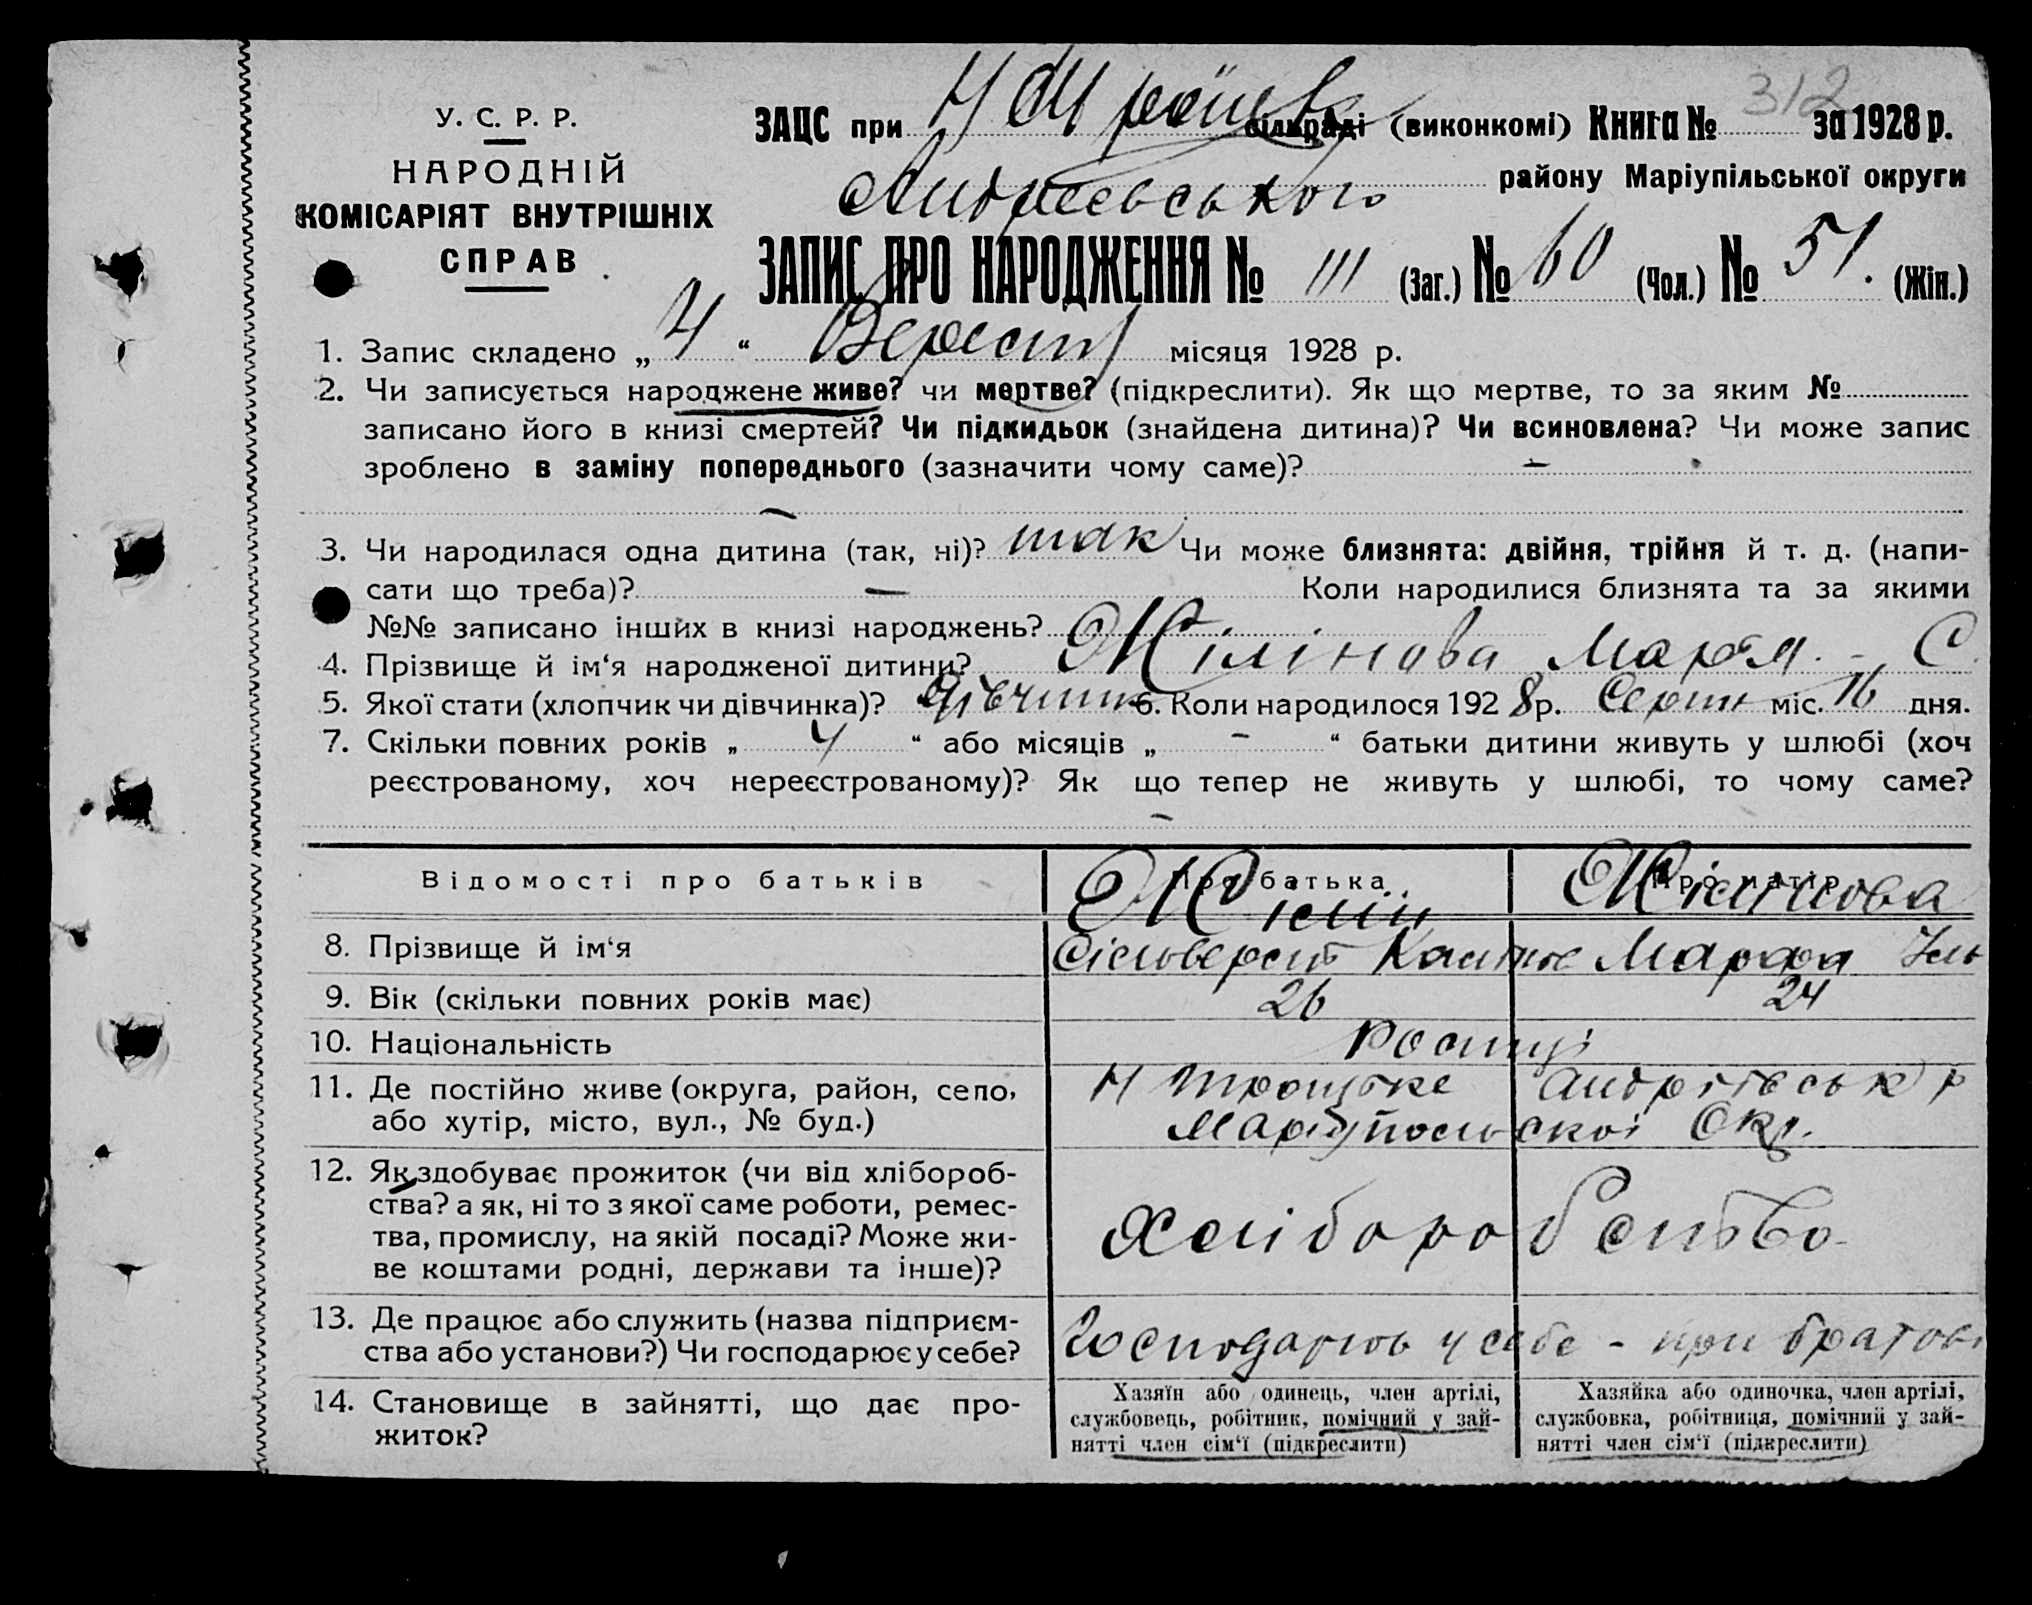 312
У. С. Р. Р.
НАРОДНІЙ
КОМІСАРІЯТ ВНУТРІШНІХ
СПРАВ
ЗАЦС при Н сільраді (виконкомі) Книга № за 1928 р.
Андріевського району Маріупільської округи
ЗАПИС ПРО НАРОДЖЕННЯ № 111 (Заг.) № 60 (Чол.) № 51. (Жін.)
1. Запис складено „ 4 “ місяця 1928 р.
2. Чи записується народжене живе? чи мертве? (підкреслити). Як що мертве, то за яким №
записано його в книзі смертей? Чи підкидьок (знайдена дитина)? Чи всиновлена? Чи може запис
зроблено в заміну попереднього (зазначити чому саме)? –
–
3. Чи народилася одна дитина (так, ні)? так Чи може близнята: двійня, трійня й т. д. (напи-
сати що треба)? — Коли народилися близнята та за якими
№№ записано інших в книзі народжень?
4. Прізвище й ім‘я народженої дитини? Жілінова Марія - С.
5. Якої стати (хлопчик чи дівчинка)? 6. Коли народилося 1928 р. міс. 16 дня.
7. Скільки повних років „ 4 “ або місяців „ - “ батьки дитини живуть у шлюбі (хоч
реєстрованому, хоч нереєстрованому)? Як що тепер не живуть у шлюбі, то чому саме?
–
Відомості про батьків Про батька Про матір
Жілін Жілінова
8. Прізвище й ім‘я Сільверст Марфа
9. Вік (скільки повних років має) 26 24
10. Національність
11. Де постійно живе (округа, район, село,
або хутір, місто, вул., № буд.)
Н Троцьке Андріївськ р
Маріупольскоі Окр.
12. Як здобуває прожиток (чи від хлібороб-
ства? а як, ні то з якої саме роботи, ремес-
тва, промислу, на якій посаді? Може жи-
ве коштами родні, держави та інше)?
Хліборобство
13. Де працює або служить (назва підприєм-
ства або установи?) Чи господарює у себе?
у себе - при братові
14. Становище в зайнятті, що дає про-
житок?
Хазяїн або одинець, член артілі,
службовець, робітник, помічний у зай-
нятті член сім‘ї (підкреслити)
Хазяйка або одиночка, член артілі,
службовка, робітниця, помічний у зай-
нятті член сім‘ї (підкреслити)